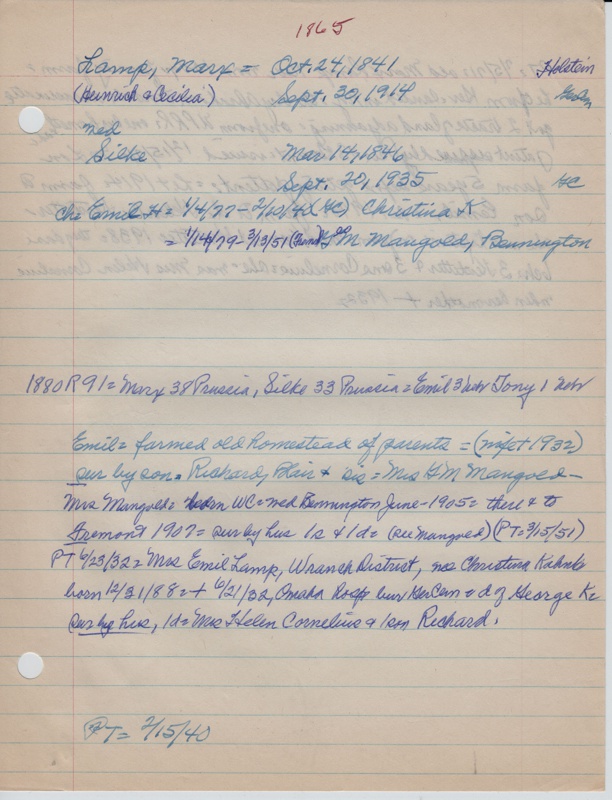 1865
Lamp, Marx = Oct. 24, 1841 Holstein
(Heinrich & Cecilia) Sept. 30, 1914
med
Silke Mar 14, 1846
Sept. 20, 1935 GC
Ch: Emil H = 1/4/77 - Christina K
= 1/14/79 - 3/13/51 M Mangold, Bennington
1880 R 91 = Marx 38 Prussia, Silke 33 Prussia = Emil 3 Neb Tony 1 Neb
Emil = farmed old homestead of parents = (wife + 1932)
sur by son = Richard, Blair + sis = Mrs H M Mangold -
Mrs Mangold = born WC = med Bennington June - 1905 = there + to
Fremont 1907 = sur by hus 1s & 1d = (see Mangold) (PT = 3/15/51)
PT 6/23/32 = Mrs Emil Lamp, Wranch District, nee Christina
born 12/31/88 = + 6/21/32, Omaha Hosp bur Ger Cem = d of George K =
sur by hus, 1d = Mrs Helen Cornelius & 1 son Richard.
PT = 2/15/40